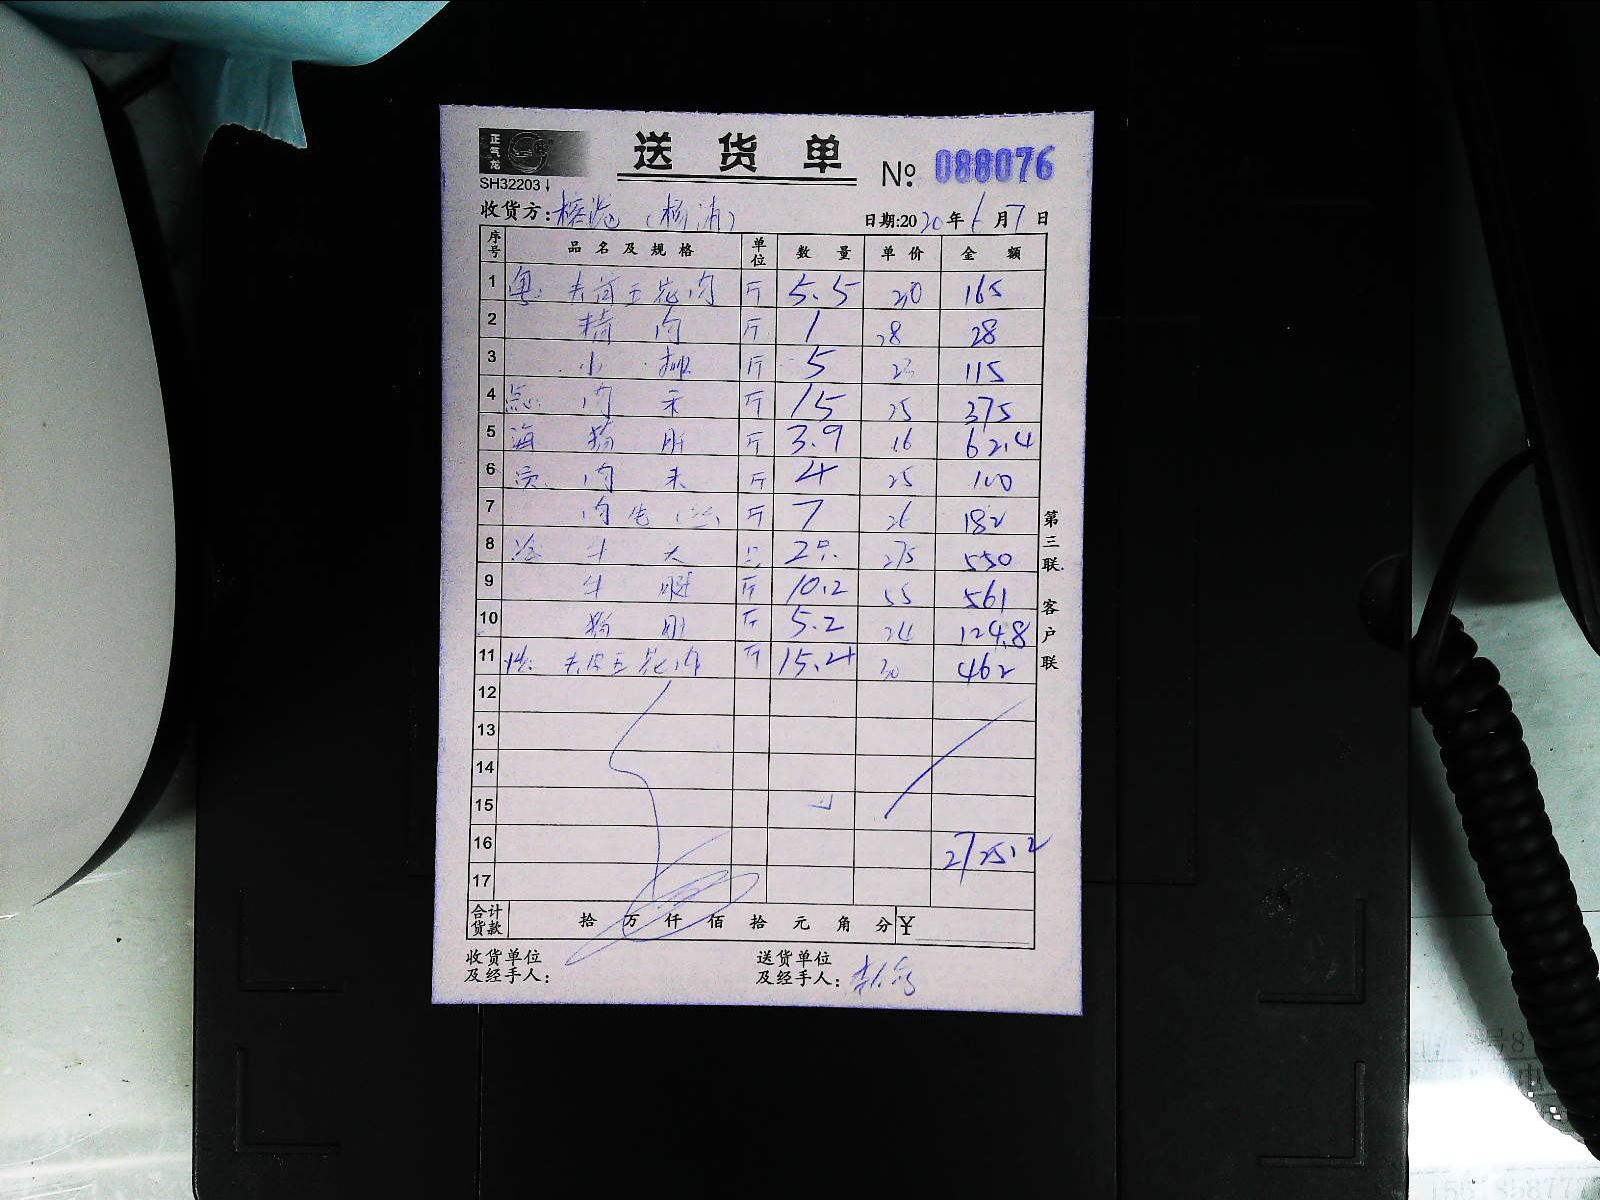 正气龙
送货单
№ 088076
SH32203
收货方: (杨浦) 日期:2020年6月7日
序号 品名及规格 单位 数量 单价 金额
1 粤: 去骨五花肉 斤 5.5 30 165
2 精肉 斤 1 28 28
3 小排 斤 5 23 115
4 点: 肉末 斤 15 25 375
5 海 斤 3.9 16 62.4
6 肉末 斤 4 25 100
7 肉 斤 7 26 182
8 牛 只 2只 275 550
9 牛腱 斤 10.2 55 561
10 斤 5.2 24 124.8
11 去皮五花肉 斤 15.4 30 462
12
13
14
15
16 2725.2
17
合计货款 拾 万 仟 佰 拾 元 角 分 ¥
收货单位及经手人:
送货单位及经手人:
第三联 客户联